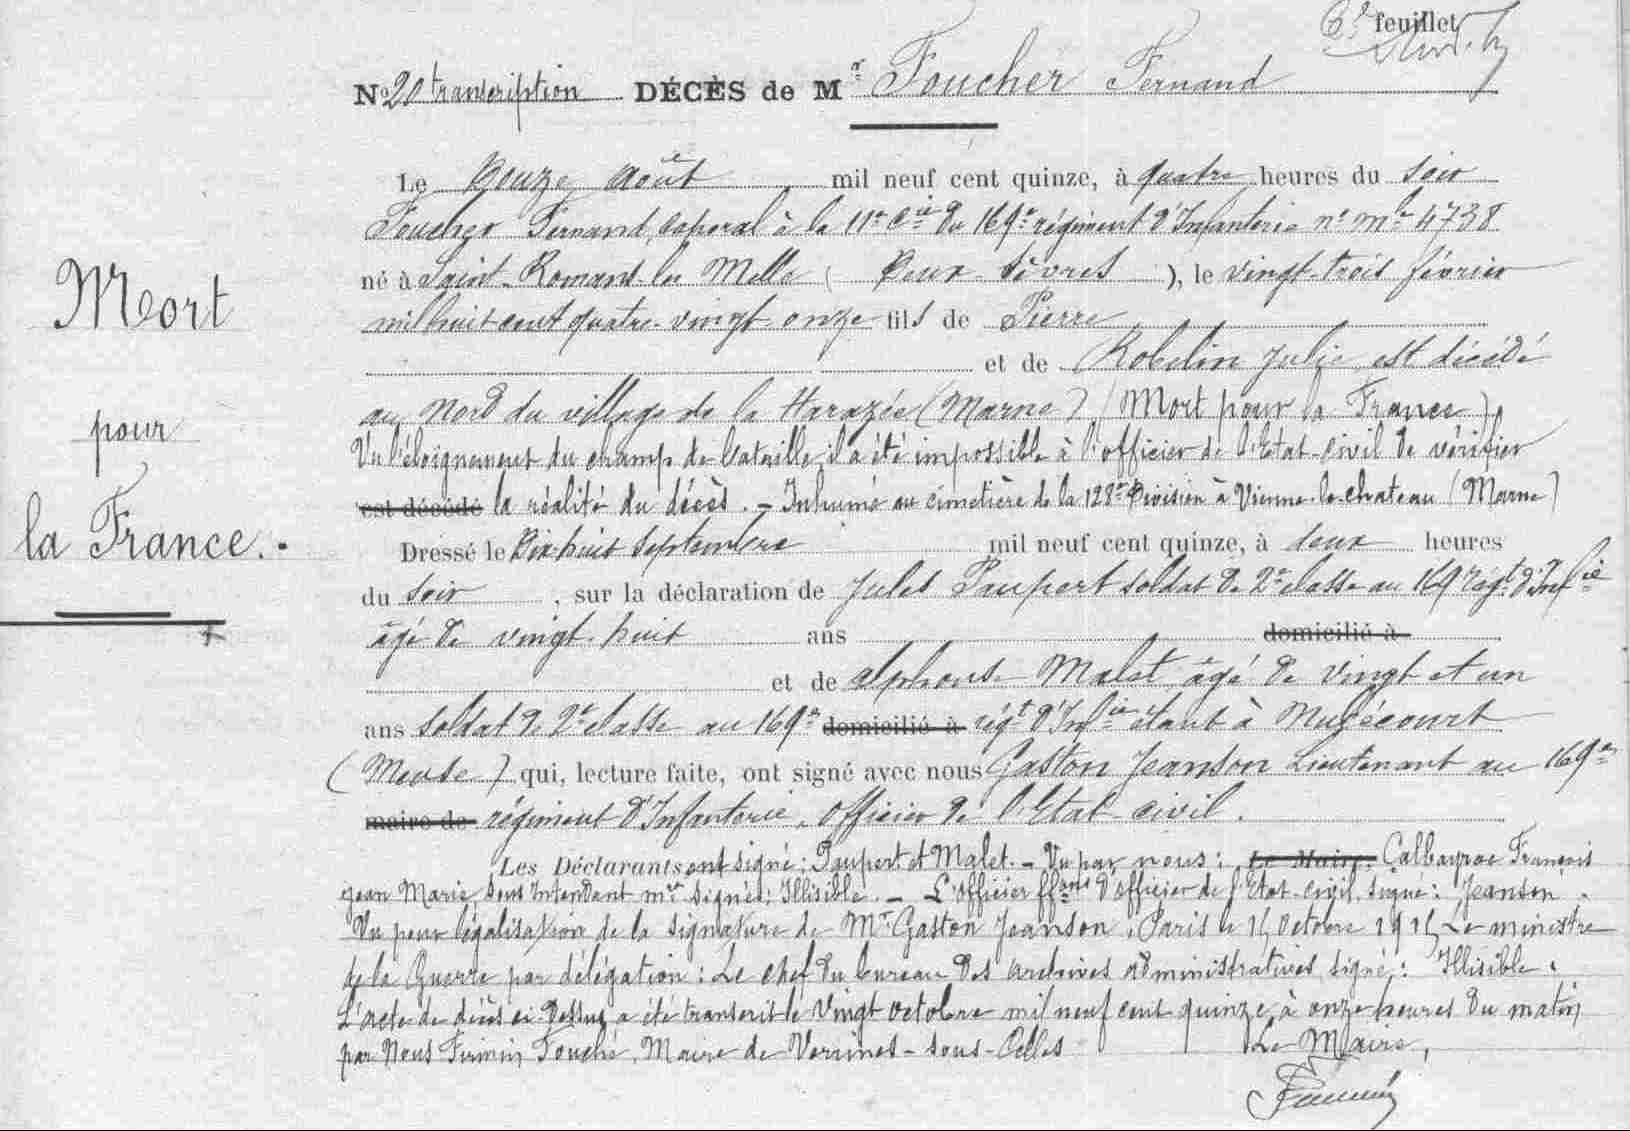 feuillet
No 20 transcription DÉCÈS de Mr Foucher Fernand
Le Douze Août mil neuf cent quinze, à quatre heures du soir
Foucher Fernand, caporal à la 11e Cie du 169e régiment d'Infanterie no mle 4738
né à Saint-Romans-les Melle ( Deux-Sèvres ), le vingt-trois février
mil huit cent quatre-vingt-onze fils de Pierre
et de Robelin Julie, est décédé
au Nord du village de la Harazée (Marne) (Mort pour la France)
Vu l'éloignement du champ de bataille, il a été impossible à l'officier de l'Etat-civil de vérifier
est décédé la réalité du décès. - Inhumé au cimetière de la 128e Division à Vienne-le-chateau (Marne)
Mort
pour
la France.
Dressé le Dix-huit Septembre mil neuf cent quinze, à deux heures
du soir, sur la déclaration de Jules Paupert soldat de 2e classe au 169 régt d'Infie
âgé de vingt-huit ans domicilié à
et de Alphonse Malet, âgé de vingt et un
ans soldat de 2e classe au 169e domicilié à régt d'Infie étant à
(Meuse) qui, lecture faite, ont signé avec nous Gaston Jeanson Lieutenant au 169e
maire de régiment d'Infanterie, Officier de l'Etat-civil.
Les Déclarants ont signé: Paupert et Malet. - Vu par nous: Le Maire, Calbayrac François
Jean Marie, Sous Intendant mre signé: Illisible. - L'officier ffans d'officier de l'Etat-civil, signé: Jeanson.
Vu pour légalisation de la signature de Mr Gaston Jeanson, Paris le 15 Octobre 1915, Le ministre
de la Guerre par délégation: Le chef du bureau des Archives administratives, signé: Illisible.
L'acte de décès ci-dessus a été transcrit le vingt octobre mil neuf cent quinze, à onze heures du matin,
par Nous Firmin Fouché, Maire de Verrines-sous-Celles Le Maire,